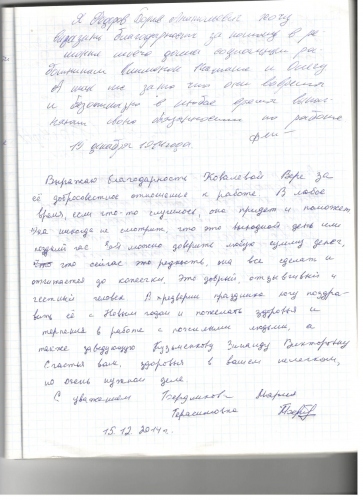 Я Федоров Борис Анатольевич хочу
выразить благодарность за помощь в ре
моего дома социальным ра
ботникам
А так же за то что они вовремя
и безотказно в любое время выпол
няют свои обязанности по работе
19 декабря
Выражаю благодарность Ковалевой Вере за
её добросовестное отношение к работе. В любое
время, если что-то случилось, она придет и поможет
никогда не смотрит, что это выходной день или
поздний час. Ей можно доверить любую сумму денег,
что сейчас это редкость, она все сделает и
отчитается до копейки. Это добрый, отзывчивый и
честный человек. В преддверии праздника хочу поздра-
вить её с Новым годом и пожелать здоровья и
терпения в работе с пожилыми людьми, а
также заведующую Кузьменкову Зинаиду Викторовну
Счастья вам, здоровья в вашем нелегком,
но очень нужном деле
С уважением Мария
Герасимовна
15.12.2014г.